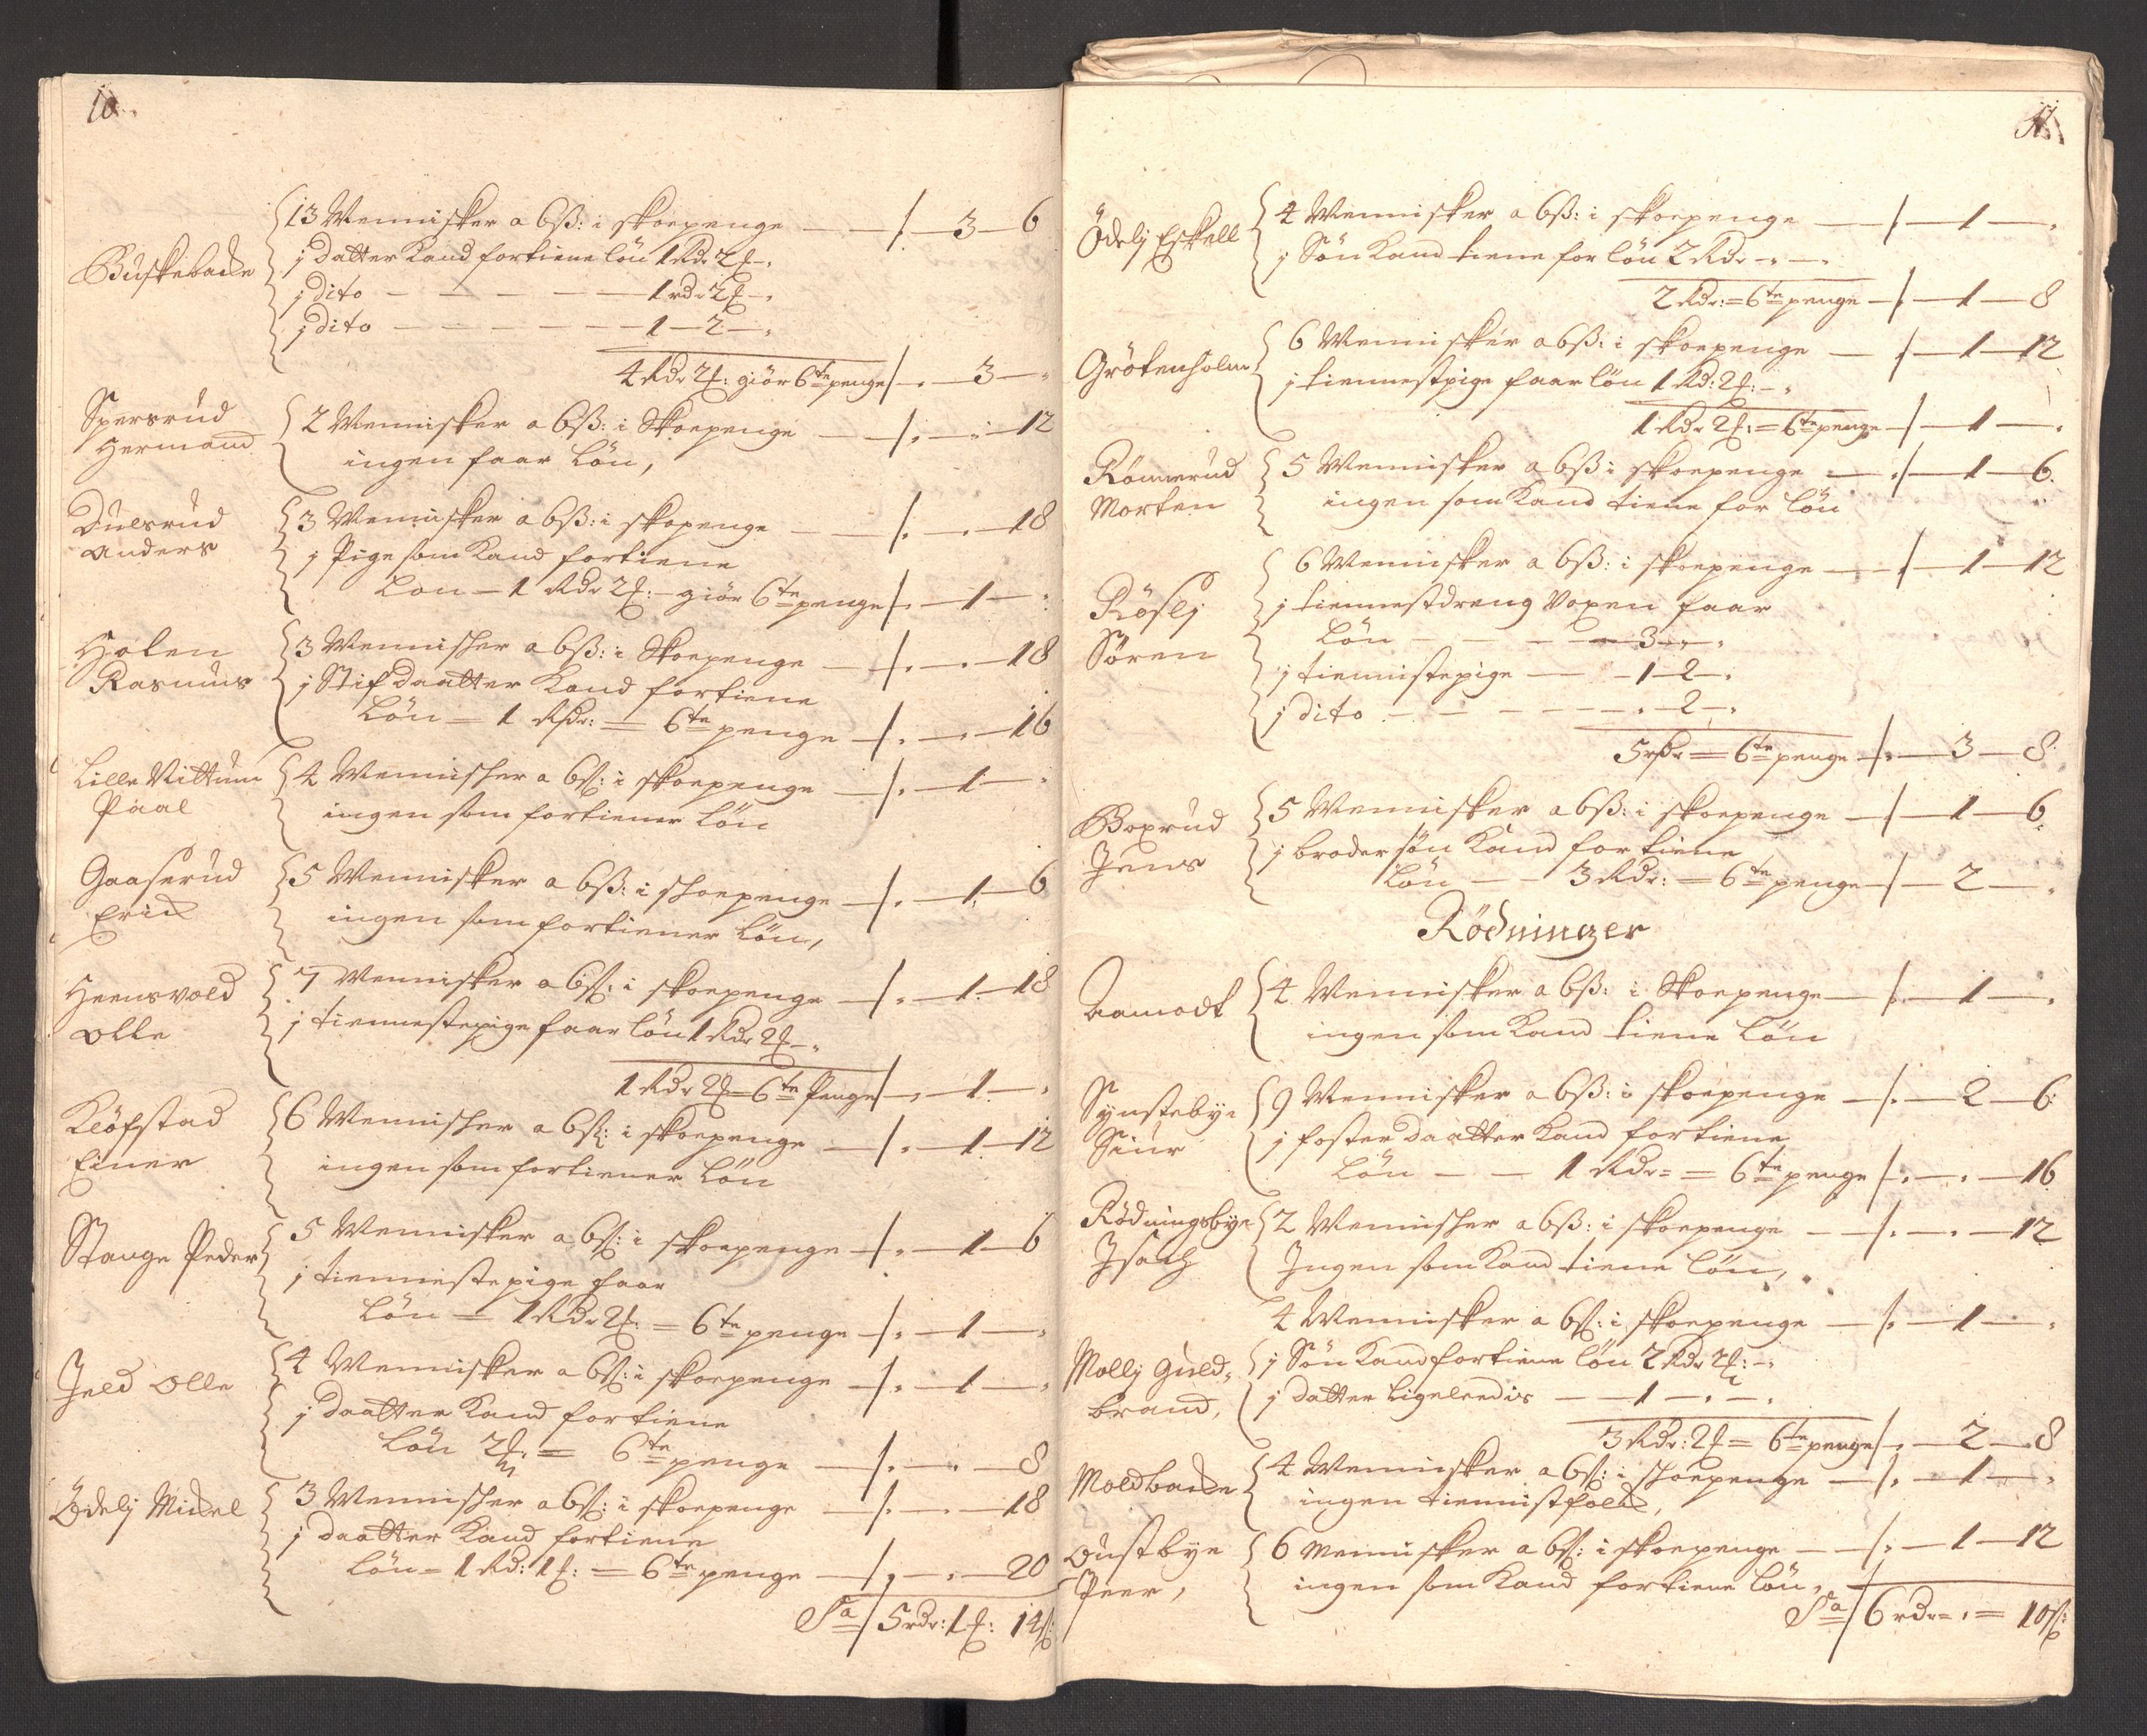 10.
Buskebache
13 Mennisker a 6ß: i skoepenge — /. — 3 — 6
j datter Kand fortiene løn 1 Rdr 2 ƒ — „
j dito — — — — 1 rdr 2 ƒ — „
j dito — — — — 1 — 2 — „
4 Rdr 2 ƒ: giør 6te penge /. „ — 3 — „
Spersrud
Hermand
2 Mennisker a 6ß: i Skoepenge — /. — „ — 12
ingen faar Løn,
Dulsrud
Anders
3 Mennisker a 6ß: i skopenge — /. — „ — 18
j Pige som Kand fortiene
Lon — 1 Rdr 2 ƒ: — giør 6te penge /. — 1 — „
Holen
Rasmus
3 Mennisker a 6ß: i Skoepenge — /. — „ — 18
j Stif daatter Kand fortiene
Løn — 1 Rdr: = 6te penge — /. — „ — 16
Lille Vittum
Paal
4 Mennisker a 6ß: i skoepenge — /. — 1 — „
ingen som fortiener Løn
Gaaserud
Erich
5 Mennisker a 6ß: i skoepenge — /. — 1 — 6
ingen som fortiener Løn,
Heensvold
Olle
7 Mennisker a 6ß: i skoepenge — /. — 1 — 18
j tiennestepige faar løn 1 Rdr 2 ƒ — „
1 Rdr 2 ƒ = 6te Penge /. — 1 — „
Kløfstad
Einer
6 Mennisker a 6ß: i skoepenge — /. — 1 — 12
ingen som fortiener Løn
Stange Peder
5 Mennisker a 6ß: i skoepenge — /. — 1 — 6
j tiennestepige faar
Løn = 1 Rdr 2 ƒ: = 6te penge — /. — 1 — „
Jeld Olle
4 Mennisker a 6ß: i skoepenge — /. — 1 — „
j daatter Kand fortiene
Løn 2 ƒ: = 6te penge — /. — „ — 8
Ødelj Michel
3 Mennisker a 6ß: i skoepenge — /. — „ — 18
j daatter Kand fortiene
Løn = 1 Rd: 1 ƒ: = 6te penge — /. — „ — 20
Sa / 5 rdr: 1 ƒ: 14 ß:
11.
Ødelj Eskell
4 Mennisker a 6ß: i skoepenge — /. — 1 — „
j Søn Kand tiene for løn 2 Rdr — „ — „
2 Rdr: = 6te penge — /. — 1 — 8
Grøtenholm
6 Mennisker a 6ß: i skoepenge — /. — 1 — 12
j tiennestpige faar løn 1 Rd: 2 ƒ: — „
1 Rdr 2 ƒ: = 6te penge — /. — 1 — „
Rønnerud
Morten
5 Mennisker a 6ß: i skoepenge — /. — 1 — 6
ingen som Kand tiene for Løn
Røslj
Søren
6 Mennisker a 6ß: i skoepenge — /. — 1 — 12
j tiennestdreng Voxen faar
Løn — — — — 3 — „ — „
j tiennistepige — — 1 — 2 — „
j dito — — — — „ — 2 — „
5 rdr = 6te penge — /. — 3 — 8
Boxrud
Jens
5 Mennisker a 6ß: i skoepenge — /. — 1 — 6
j brodersøn Kand fortiene
Løn — — 3 Rdr: = 6te penge — /. — 2 — „
Rødninger
Aamodt
4 Mennisker a 6ß: i Skoepenge — /. — 1 — „
ingen som Kand tiene Løn
Synstebye
Siur
9 Mennisker a 6ß: i skoepenge — /. — 2 — 6
j foster daatter Kand fortiene
Løn — — 1 Rdr = = 6te penge /. — „ — 16
Rødningsbye
Isach
2 Mennisker a 6ß: i skoepenge — /. — „ — 12
Ingen som Kand tiene Løn,
Mollj Guld-
brand,
4 Mennisker a 6ß: i skoepenge — /. — 1 — „
j Søn Kand fortiene løn 2 Rdr 2 ƒ: — „
j datter ligeleedis — 1 — „ — „
3 Rdr: 2 ƒ = 6te penge /. — 2 — 8
Moldbache
4 Mennisker a 6ß: i skoepenge — /. — 1 — „
ingen tiennistfolch,
Oustbye
Peer,
6 Mennisker a 6ß: i skoepenge — /. — 1 — 12
ingen som Kand fortiene Løn,
Sa / 6 rdr = „ = 10 ß: